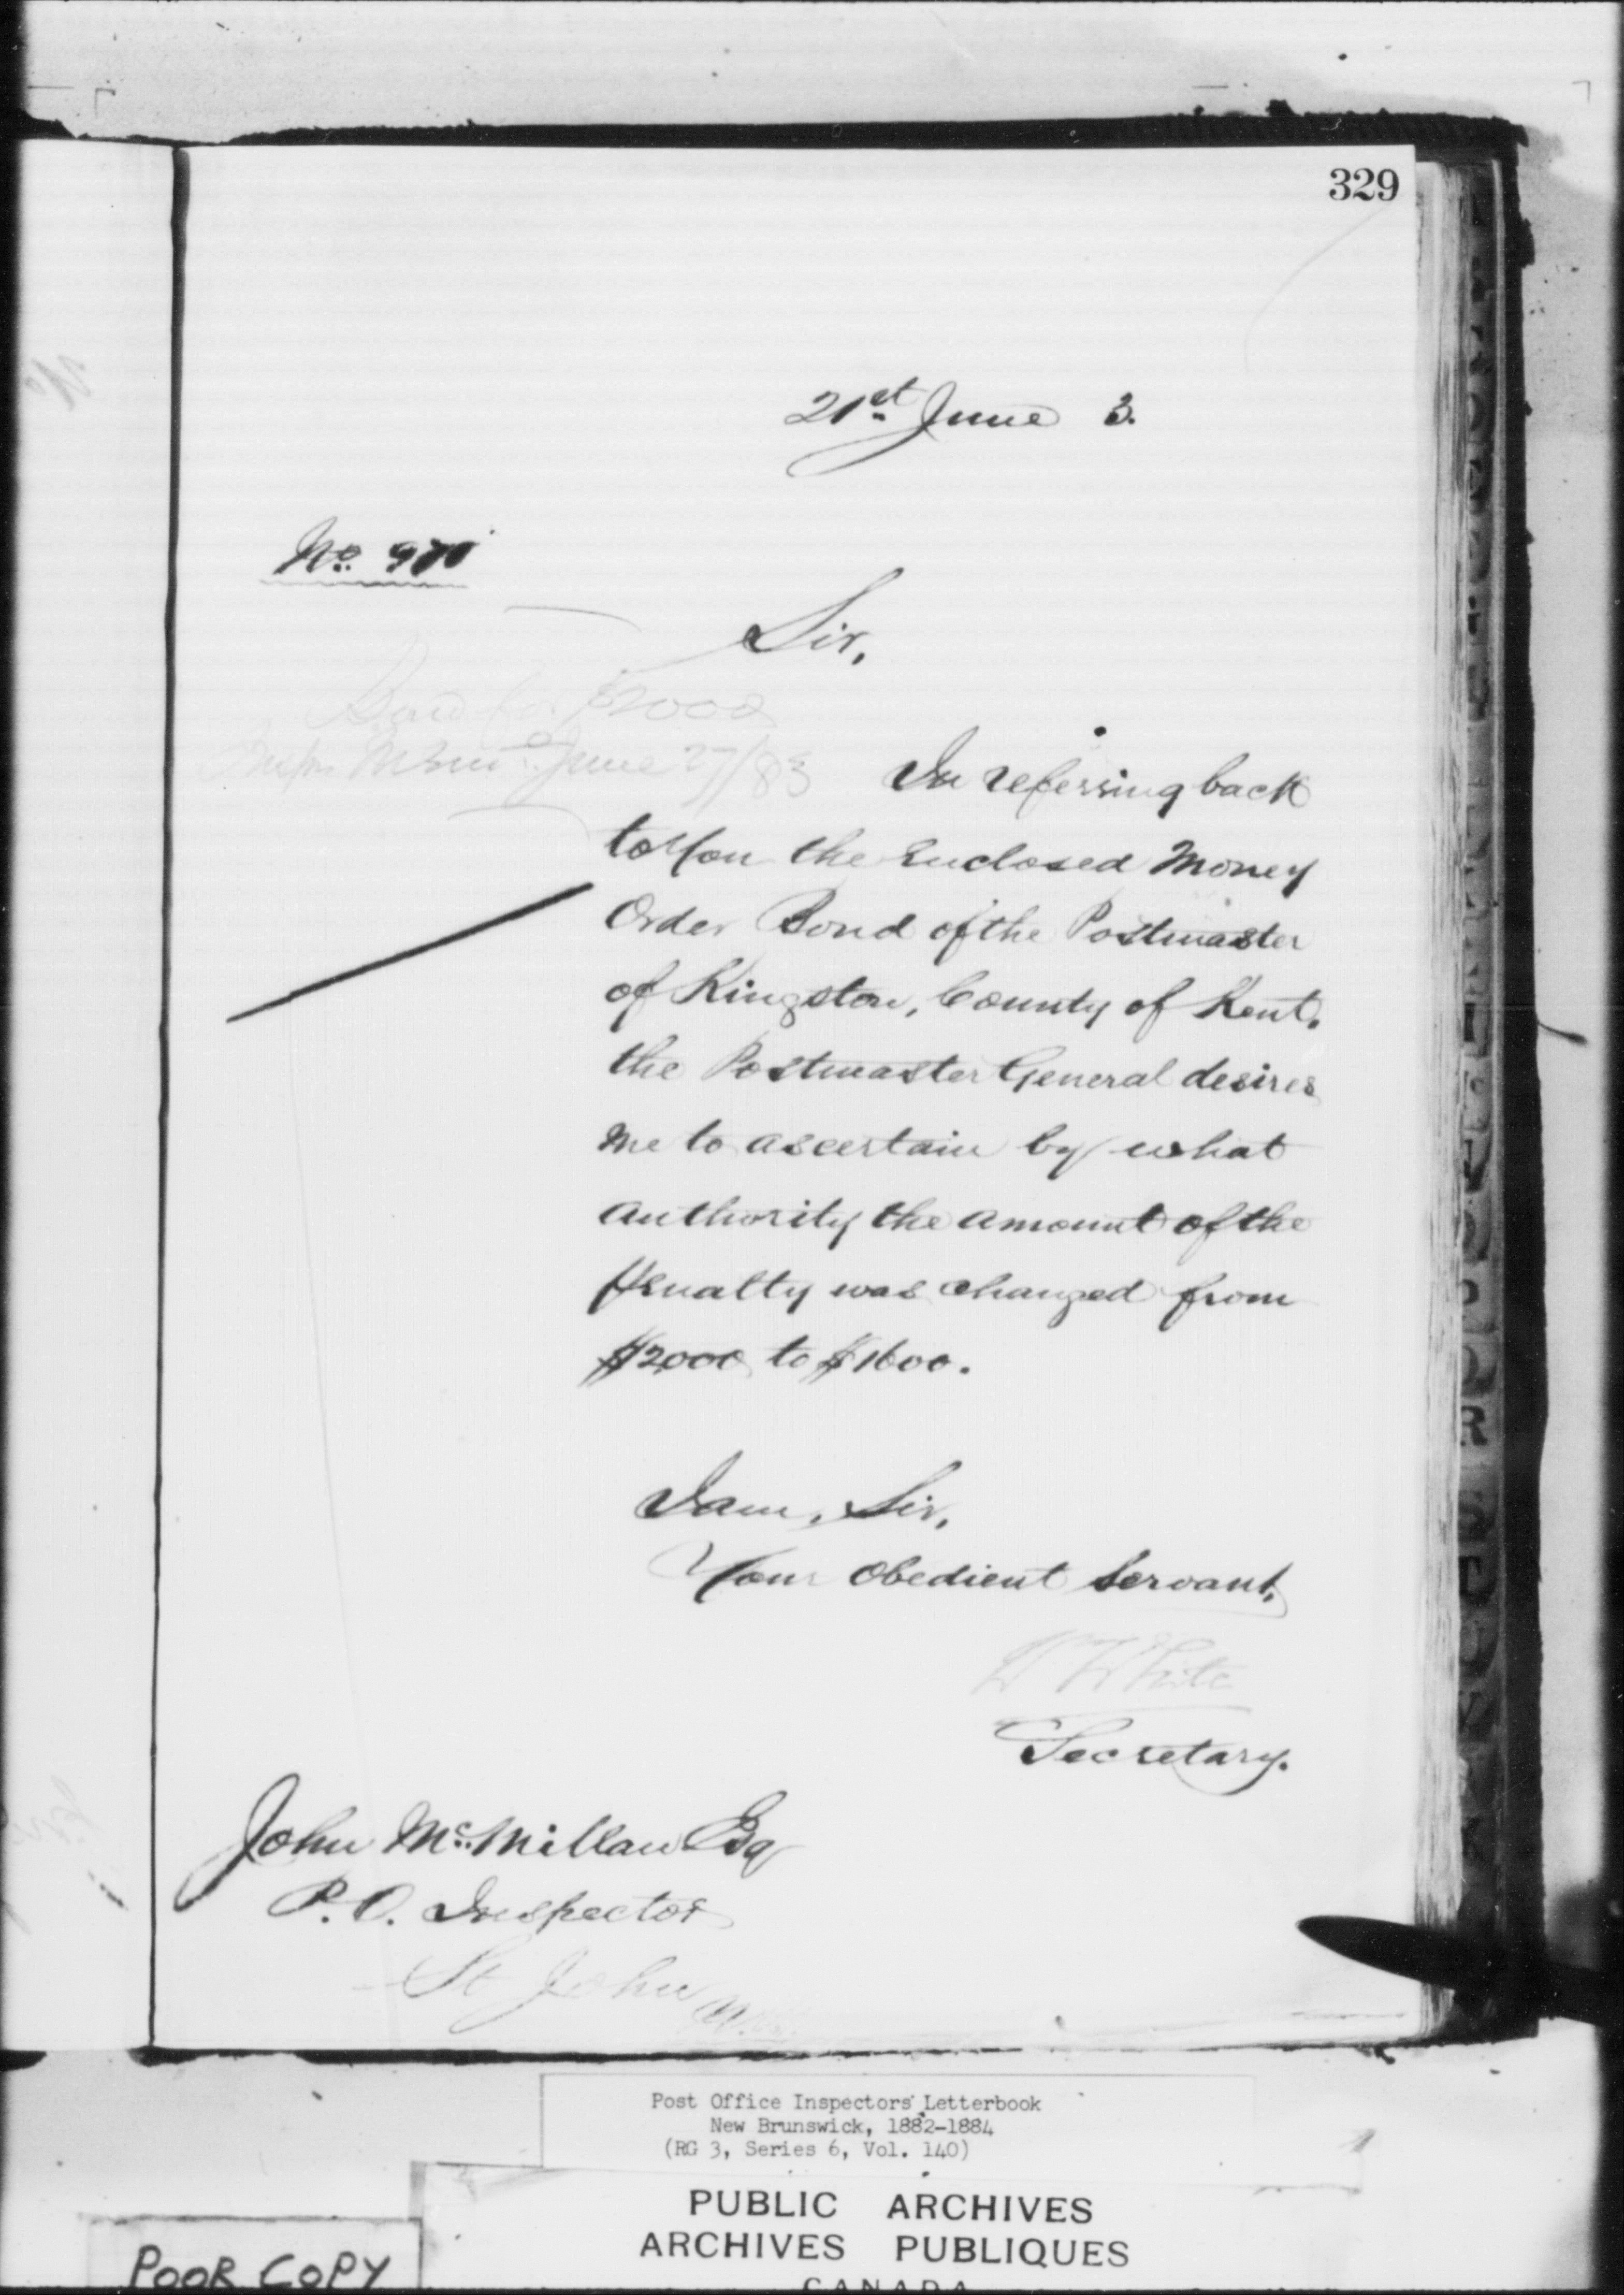 329
21st June 3.
No.
Sir,
Bond for $2000
June 27/83
In referring back
to You the Enclosed Money
Order Bond of the Postmaster
of Kingston, County of Kent,
the Postmaster General desires
me to ascertain by what
authority the amount of the
Penalty was changed from
$2000 to $1600.
I am, Sir,
Your Obedient Servant,
W White
Secretary.
John McMillan Esq
P.O. Inspector
St John
Post Office Inspectors' Letterbook
New Brunswick, 1882-1884
(RG 3, Series 6, Vol. 140)
PUBLIC ARCHIVES
ARCHIVES PUBLIQUES
CANADA
POOR COPY